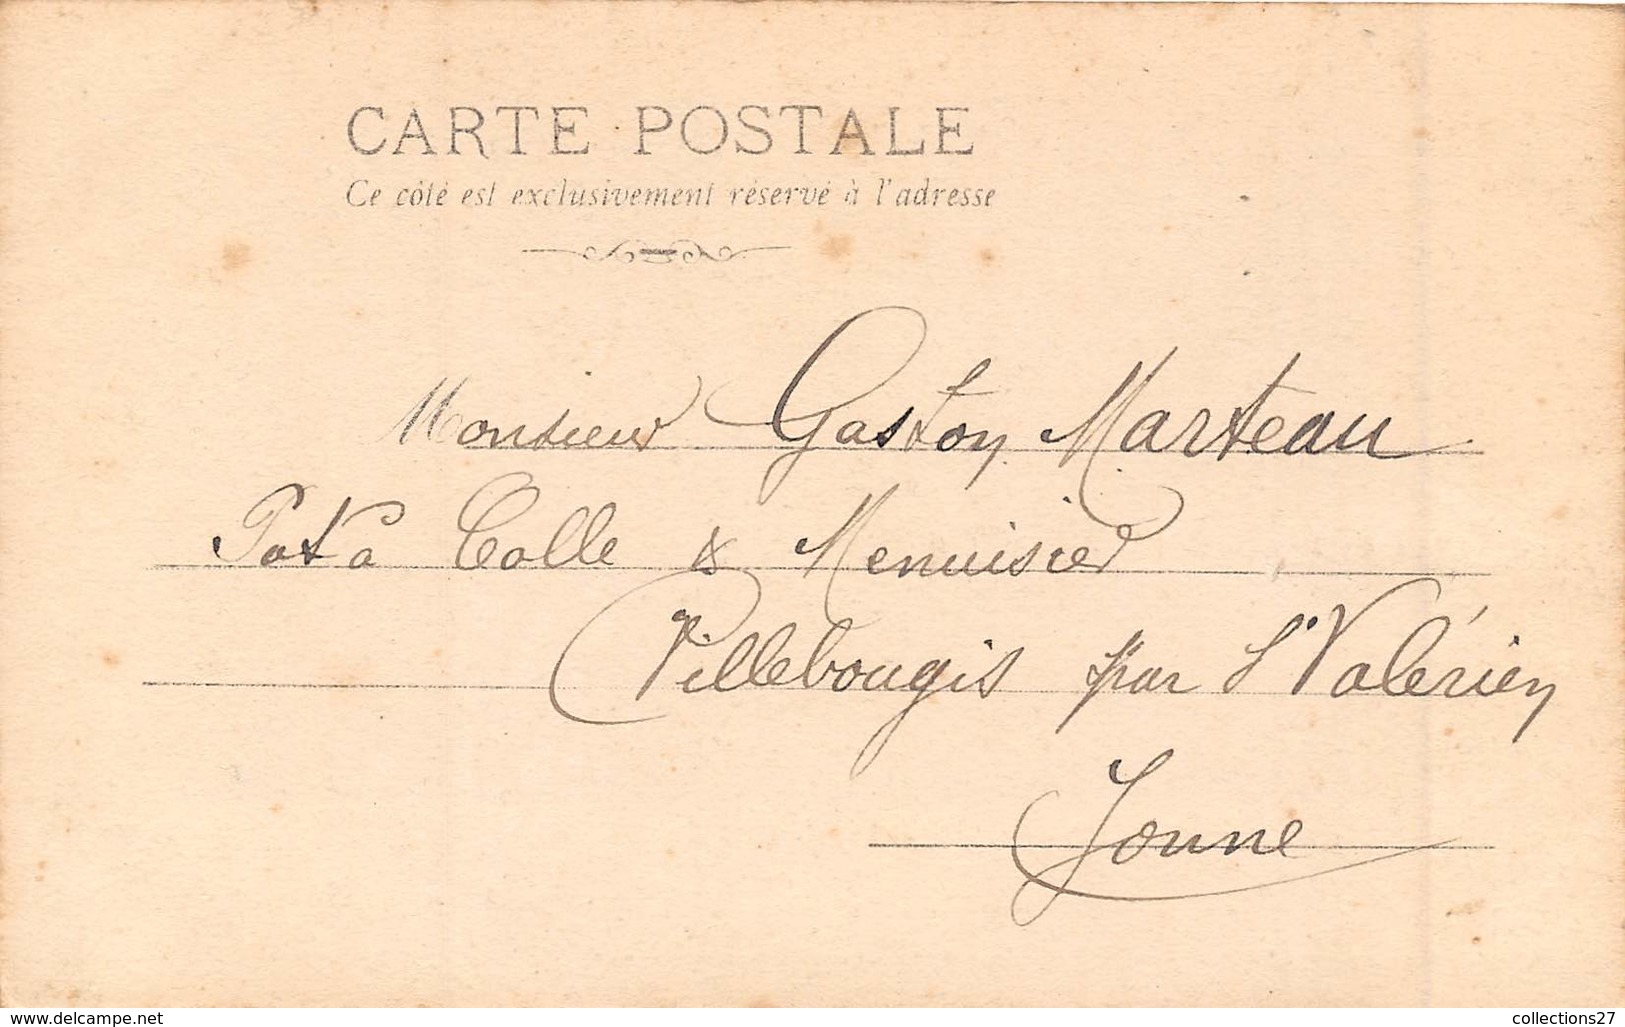 CARTE POSTALE
Ce côté est exclusivement réservé à l'adresse
Monsieur Gaston Marteau
Pot à Colle & Menuisier
Villebougis par St Valérien
Yonne
www.delcampe.net
collections27